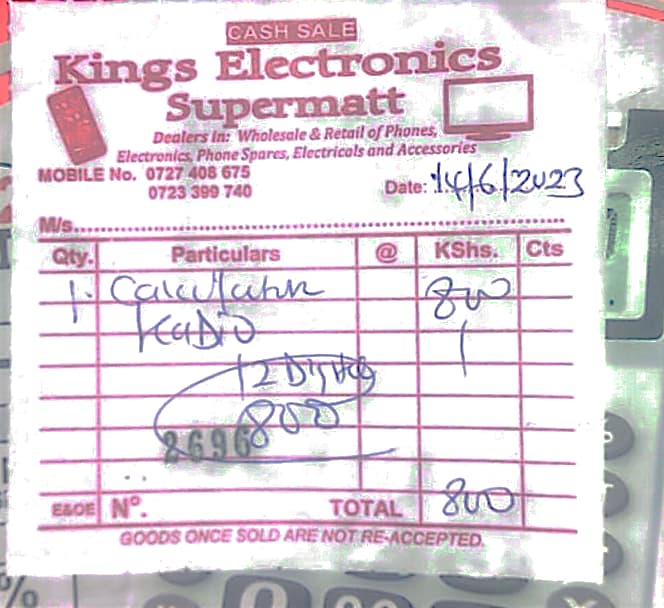 CASH SALE
Kings Electronics
Supermatt
Dealers In: Wholesale & Retail of Phones,
Electronics, Phone Spares, Electricals and Accessories
MOBILE No. 0727 408 675
0723 399 740
Date: 14/6/2023
M/s.
Qty. Particulars @ KShs. Cts
1. Calculator 800
12 Digits
800
2696
E&OE No. TOTAL 800
GOODS ONCE SOLD ARE NOT RE-ACCEPTED.